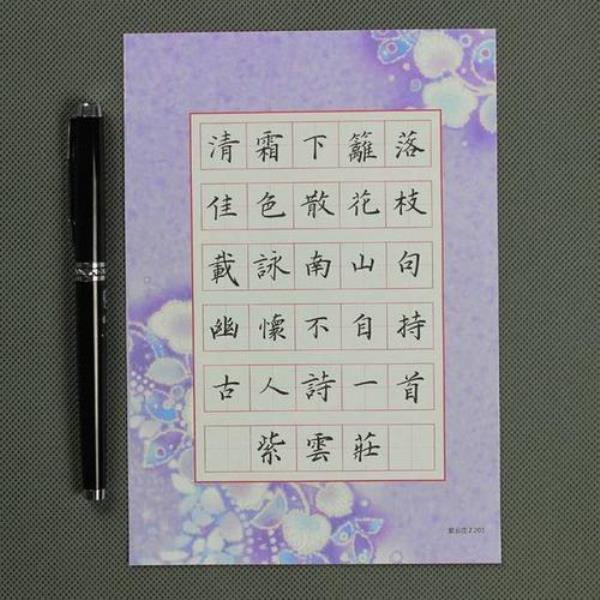 清霜下籬落
佳色散花枝
載詠南山句
幽懷不自持
古人詩一首
紫雲莊
紫云庄Z203